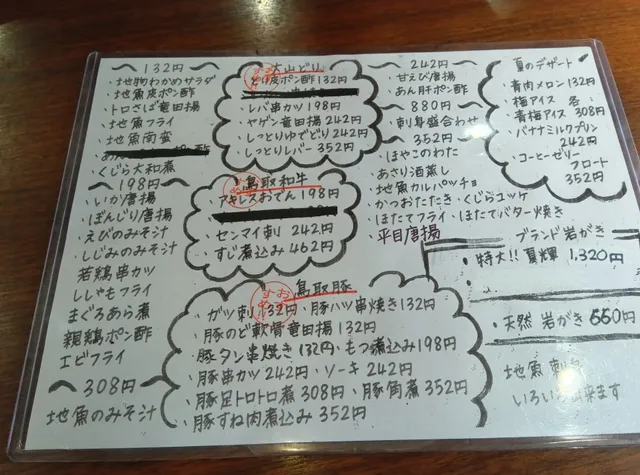 132円
・地物わかめサラダ
・地魚皮ポン酢
・トロさば竜田揚
・地魚フライ
・地魚南蛮
・くじら大和煮
198円
・いか唐揚
・ぼんじり唐揚
・えびのみそ汁
・しじみのみそ汁
若鶏串カツ
ししゃもフライ
まぐろあら煮
親鶏ポン酢
エビフライ
308円
地魚のみそ汁
大山どり
とり皮ポン酢132円
・レバ串カツ198円
・ヤゲン竜田揚242円
・しっとりゆでどり242円
・しっとりレバー352円
鳥取和牛
アキレスおでん198円
・センマイ刺242円
・すじ煮込み462円
おすすめ
鳥取豚
・ガツ刺132円・豚ハツ串焼き132円
・豚のど軟骨竜田揚132円
・豚タン串焼き132円・もつ煮込み198円
・豚串カツ242円・ソーキ242円
・豚足トロトロ煮308円・豚角煮352円
・豚すね肉煮込み352円
242円
・甘えび唐揚
・あん肝ポン酢
880円
・刺身盛合わせ
352円
・ほやこのわた
・あさり酒蒸し
・地魚カルパッチョ
・かつおたたき・くじらユッケ
・ほたてフライ・ほたてバター焼き
・平目唐揚
夏のデザート
・青肉メロン132円
・梅アイス 各
・青梅アイス308円
・バナナミルクプリン
242円
・コーヒーゼリー
フロート
352円
ブランド岩がき
・特大!!夏輝1,320円
・天然岩がき660円
地魚
いろいろ 出来ます